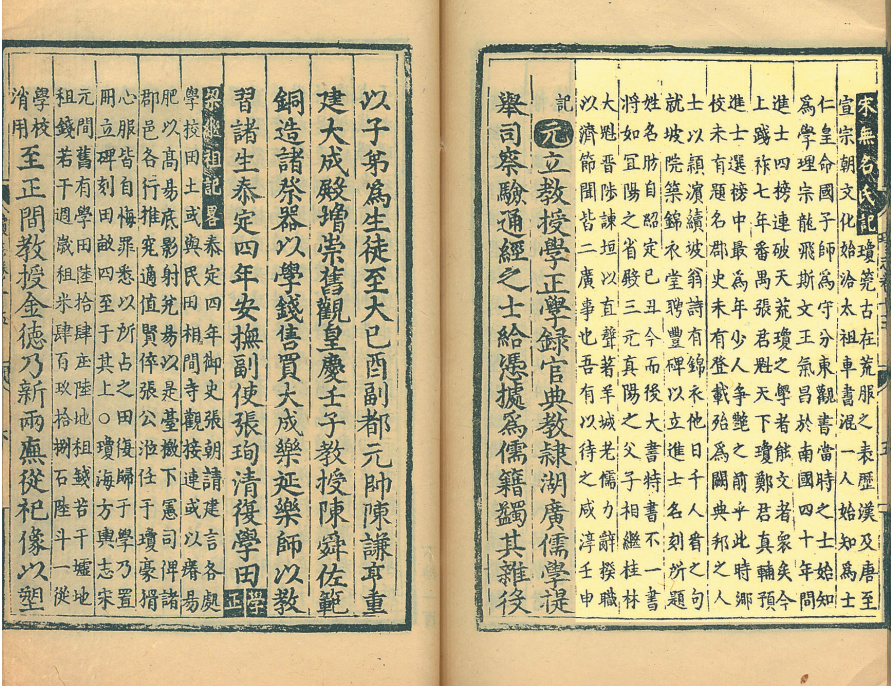 宋無名氏記瓊筦古在荒服之表歷漢及唐至
宣宗朝文化始洽太祖車書混一人始知為士
仁皇命國子師為守分東觀書當時之士始知
為學理宗龍飛斯文正氣昌於南國四十年間
進士四榜連破天荒瓊之學者能文者衆矣今
上踐祚七年番禺張君魁天下瓊鄭君真輔預
進士選榜中最為年少人争艷之前乎此時鄉
校未有題名郡史未有登載殆為闕典邦之人
士以潁濱續坡翁詩有錦衣他日千人看之句
就坡院築錦衣堂聘豐碑以立進士名刻所題
姓名肪自昭定已丑今而後大書特書不一書
將如宜陽之省殿三元真陽之父子相繼桂林
大魁晋陟諫垣以直聲著羊城老儒力辭揆職
以濟節聞皆二廣事也吾有以待之咸淳壬申
記
元立教授學正學録官典教隷湖廣儒學提
舉司察驗通經之士給慿據為儒籍蠲其雜役
以子弟為生徒至大已酉副都元帥陳謙亨重
建大成殿增崇舊觀皇慶壬子教授陳舜佐範
銅造諸祭器以學錢售買大成樂延樂師以教
習諸生泰定四年安撫副使張珣清復學田學正
梁繼祖記畧泰定四年御史張朝請建言各處
學校田土或與民田相間寺觀接連或以瘠易
肥以高易底影射兊易以是臺檄下憲司俾諸
郡邑各行推究適值賢倅張公涖任于瓊豪猾
心服皆自悔罪悉以所占之田復歸于學乃置
冊立碑刻田畝四至于其上○瓊海方輿志宋
元間舊有學田陸拾肆庄陸地租錢若干墟地
租錢若干週歲租米肆百玖拾捌石陸斗一從
學校
消用至正間教授金德乃新兩廡從祀像以塑